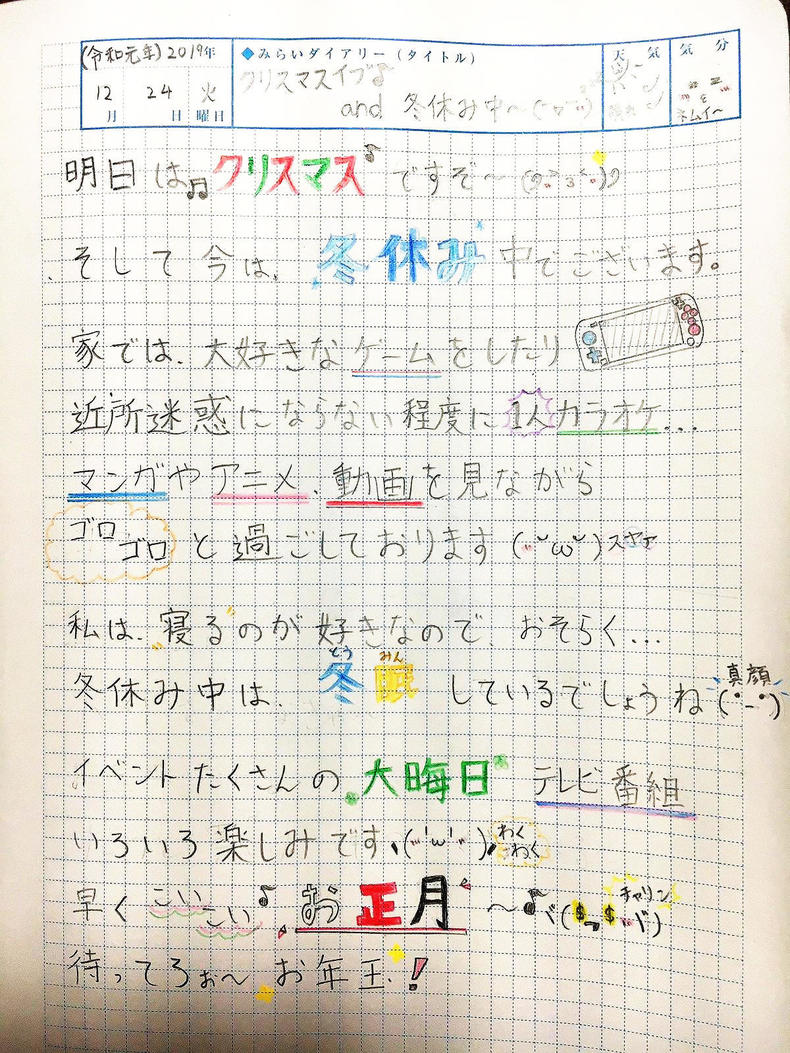 (令和元年) 2019年
12月 24日 火曜日
◆みらいダイアリー (タイトル)
クリスマスイブ♪
and 冬休み中〜
天気
気分
ネムイ〜
明日は♫クリスマス♪ですぞ〜
そして今は、冬休み中でございます。
家では、大好きなゲームをしたり
近所迷惑にならない程度に1人カラオケ...
マンガやアニメ、動画を見ながら
ゴロゴロと過ごしております(˘ω˘)スヤァ
私は、"寝る"のが好きなので、おそらく...
とう みん
冬休み中は、冬眠しているでしょうね
真顔
イベントたくさんの大晦日 テレビ番組
いろいろ楽しみです('ω')わくわく
早くこいこい♪お正月〜♪($ $)チャリン
待ってろぉ〜お年玉!